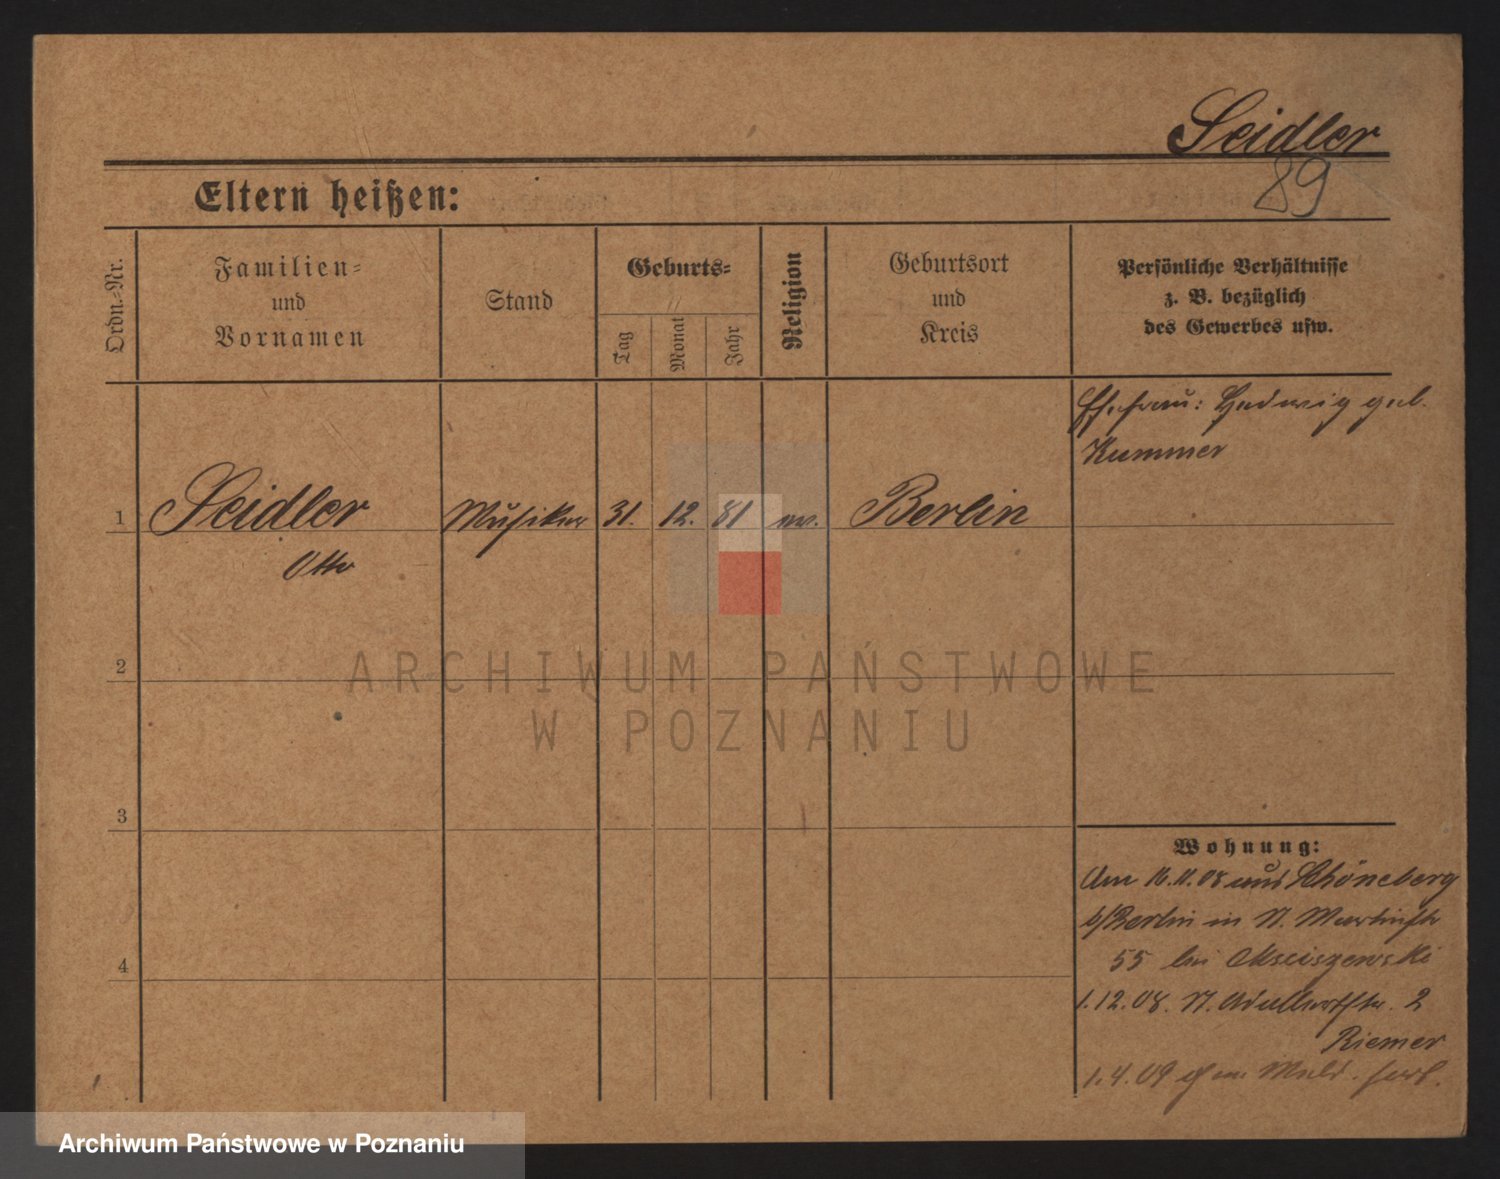 Seidler
89
Eltern heißen:
Ordn.-Nr.
Familien-
und
Vornamen
Stand
Geburts-
Tag
Monat
Jahr
Religion
Geburtsort
und
Kreis
Persönliche Verhältnisse
z. B. bezüglich
des Gewerbes usw.
Ehefrau: Hedwig geb.
Kummer
1 Seidler Musiker 31. 12. 81 ev. Berlin
Otto
2
3
4
Wohnung:
Am 16.11.08 aus Schöneberg
b/Berlin in St. Martinstr
55 bei
1.12.08. St. 2
Riemer
1.4.09
ARCHIWUM PAŃSTWOWE
W POZNANIU
Archiwum Państwowe w Poznaniu